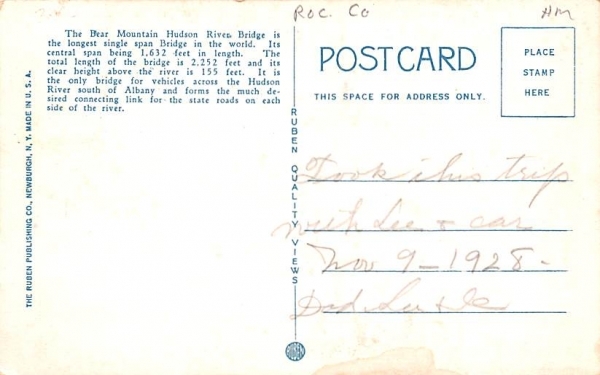 Roc. Co
HM
The Bear Mountain Hudson River Bridge is
the longest single span Bridge in the world. Its
central span being 1,632 feet in length. The
total length of the bridge is 2,252 feet and its
clear height above the river is 155 feet. It is
the only bridge for vehicles across the Hudson
River south of Albany and forms the much de-
sired connecting link for the state roads on each
side of the river.
THE RUBEN PUBLISHING CO., NEWBURGH, N. Y. MADE IN U. S. A.
RUBEN QUALITY VIEWS
RUBEN
POST CARD
THIS SPACE FOR ADDRESS ONLY.
PLACE
STAMP
HERE
Took this trip
with Lee & car
Nov 9-1928-
Dad. Lee &